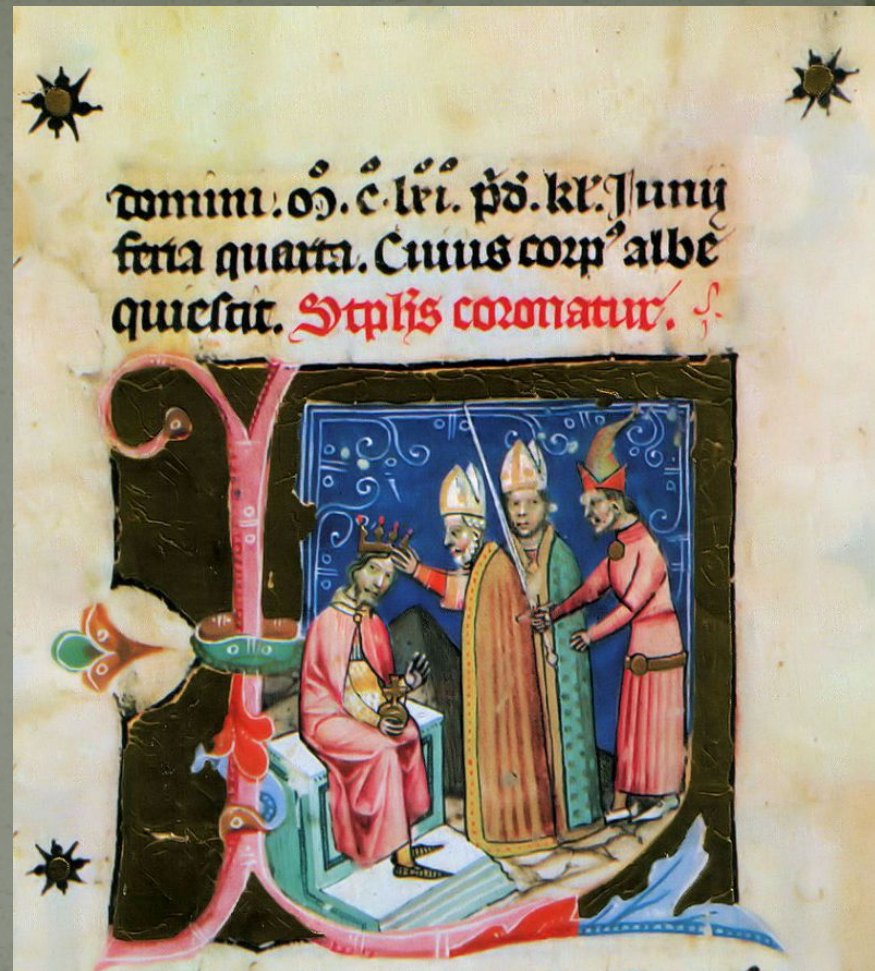 domini. mͦ. cͦ. lxͦiͦ. p̄d. kl̄. Junij
feria quarta. Cuius corpꝰ albe
quiescit. Stph̄s coronatur.